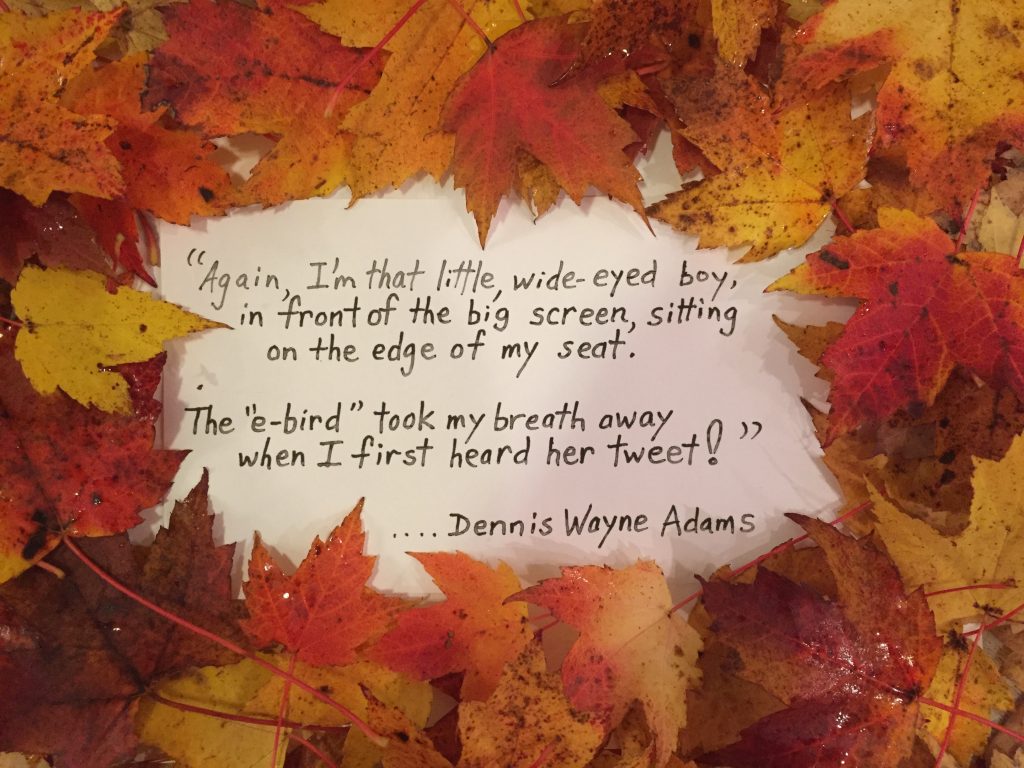 “Again, I'm that little, wide-eyed boy,
in front of the big screen, sitting
on the edge of my seat.
.
The "e-bird" took my breath away
when I first heard her tweet!”
.... Dennis Wayne Adams